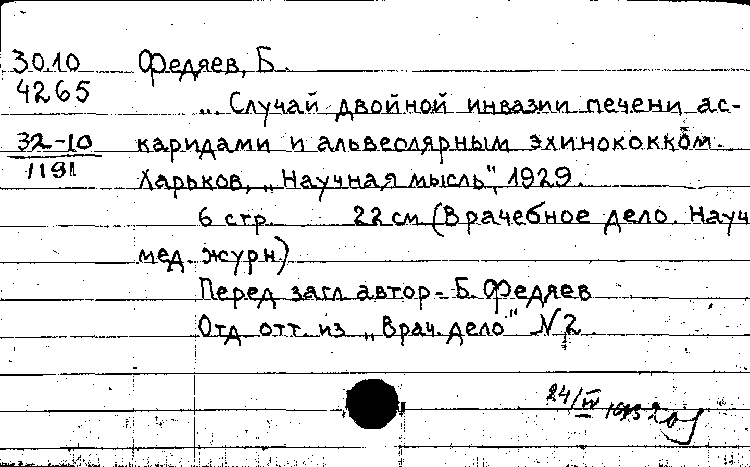 30.10
4265
32-10
1191
Федяев, Б.
... Случай двойной инвазии печени ас-
каридами и альвеолярным эхинококком.
Харьков, „Научная мысль", 1929.
6 стр. 22 см (Врачебное дело. Науч
мед. журн.)
Перед загл. автор - Б. Федяев
Отд. отт. из „Врач. дело" № 2.
24/IV